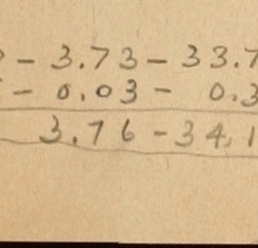 - 3.73 - 33.7
- 0.03 - 0.3
3.76 - 34.1